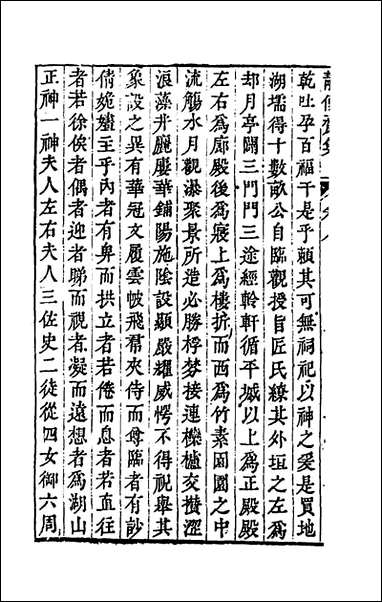 乾吐孕百福于是乎賴其可無祠祀以神之爰是買地
湖堧得十數畝公自臨觀授官匠氏繚其外垣之左爲
却月亭闢三門門三途經幹軒循平墄以上爲正殿殿
左右爲廊殿後爲寢上爲樓折而西爲竹素園園之中
流觴水月觀瀑聚景所造必勝桴棼接連欂櫨交攢澀
浪藻井麗廔華鋪陽施陰設顯嚴耀威愕不得視舉其
象設之異有華冠文履雲帔飛帬夾侍而尊臨者有訬
倩姽嫿主乎內者有卑而拱立者若倦而息者若直往
者若徐俟者偶者迎者睇而視者凝而遠想者爲湖山
正神一神夫人左右夫人三佐史二徒從四女御六周